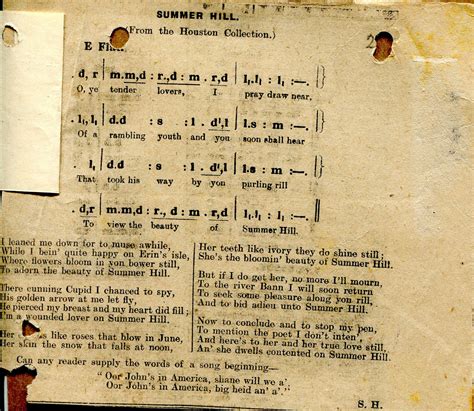 SUMMER HILL.
(From the Houston Collection.)
2
E Flat.
. d, r | m.m,d : r.,d : m . r,d | l₁.l₁ : l₁ :—. ‖
O, ye tender lovers, I pray draw near,
. l₁,l₁ | d.d : s : l . d',l | l.s : m :—. ‖
Of a rambling youth and you soon shall hear
. l₁ | d.d : s : l . d',l | l.s : m :—. ‖
That took his way by yon purling rill
. d,r | m.m,d : r., d : m . r,d | l₁.l₁ : l₁ :—. ‖
To view the beauty of Summer Hill.
I leaned me down for to muse awhile,
While I bein' quite happy on Erin's isle,
Where flowers bloom in yon bower still,
To adorn the beauty of Summer Hill.
There cunning Cupid I chanced to spy,
His golden arrow at me let fly,
He pierced my breast and my heart did fill;
I'm a wounded lover on Summer Hill.
Her like roses that blow in June,
Her skin the snow that falls at noon,
Her teeth like ivory they do shine still;
She's the bloomin' beauty of Summer Hill.
But if I do get her, no more I'll mourn,
To the river Bann I will soon return
To seek some pleasure along yon rill,
And to bid adieu unto Summer Hill.
Now to conclude and to stop my pen,
To mention the poet I don't inten',
And here's to her and her true love still,
An' she dwells contented on Summer Hill.
Can any reader supply the words of a song beginning—
" Oor John's in America, shane will we a'.
Oor John's in America, big heid an' a'."
S. H.